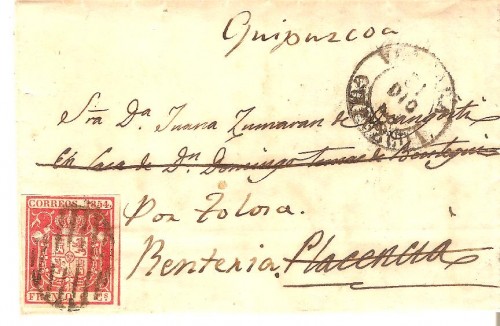 Guipuzcoa
Sra Da Juana Zumaran de
En Casa de Dn Domingo Tomas de
Por Tolosa.
Renteria. Placencia
CORREOS. 1854.
FRANCO. 6 Cs